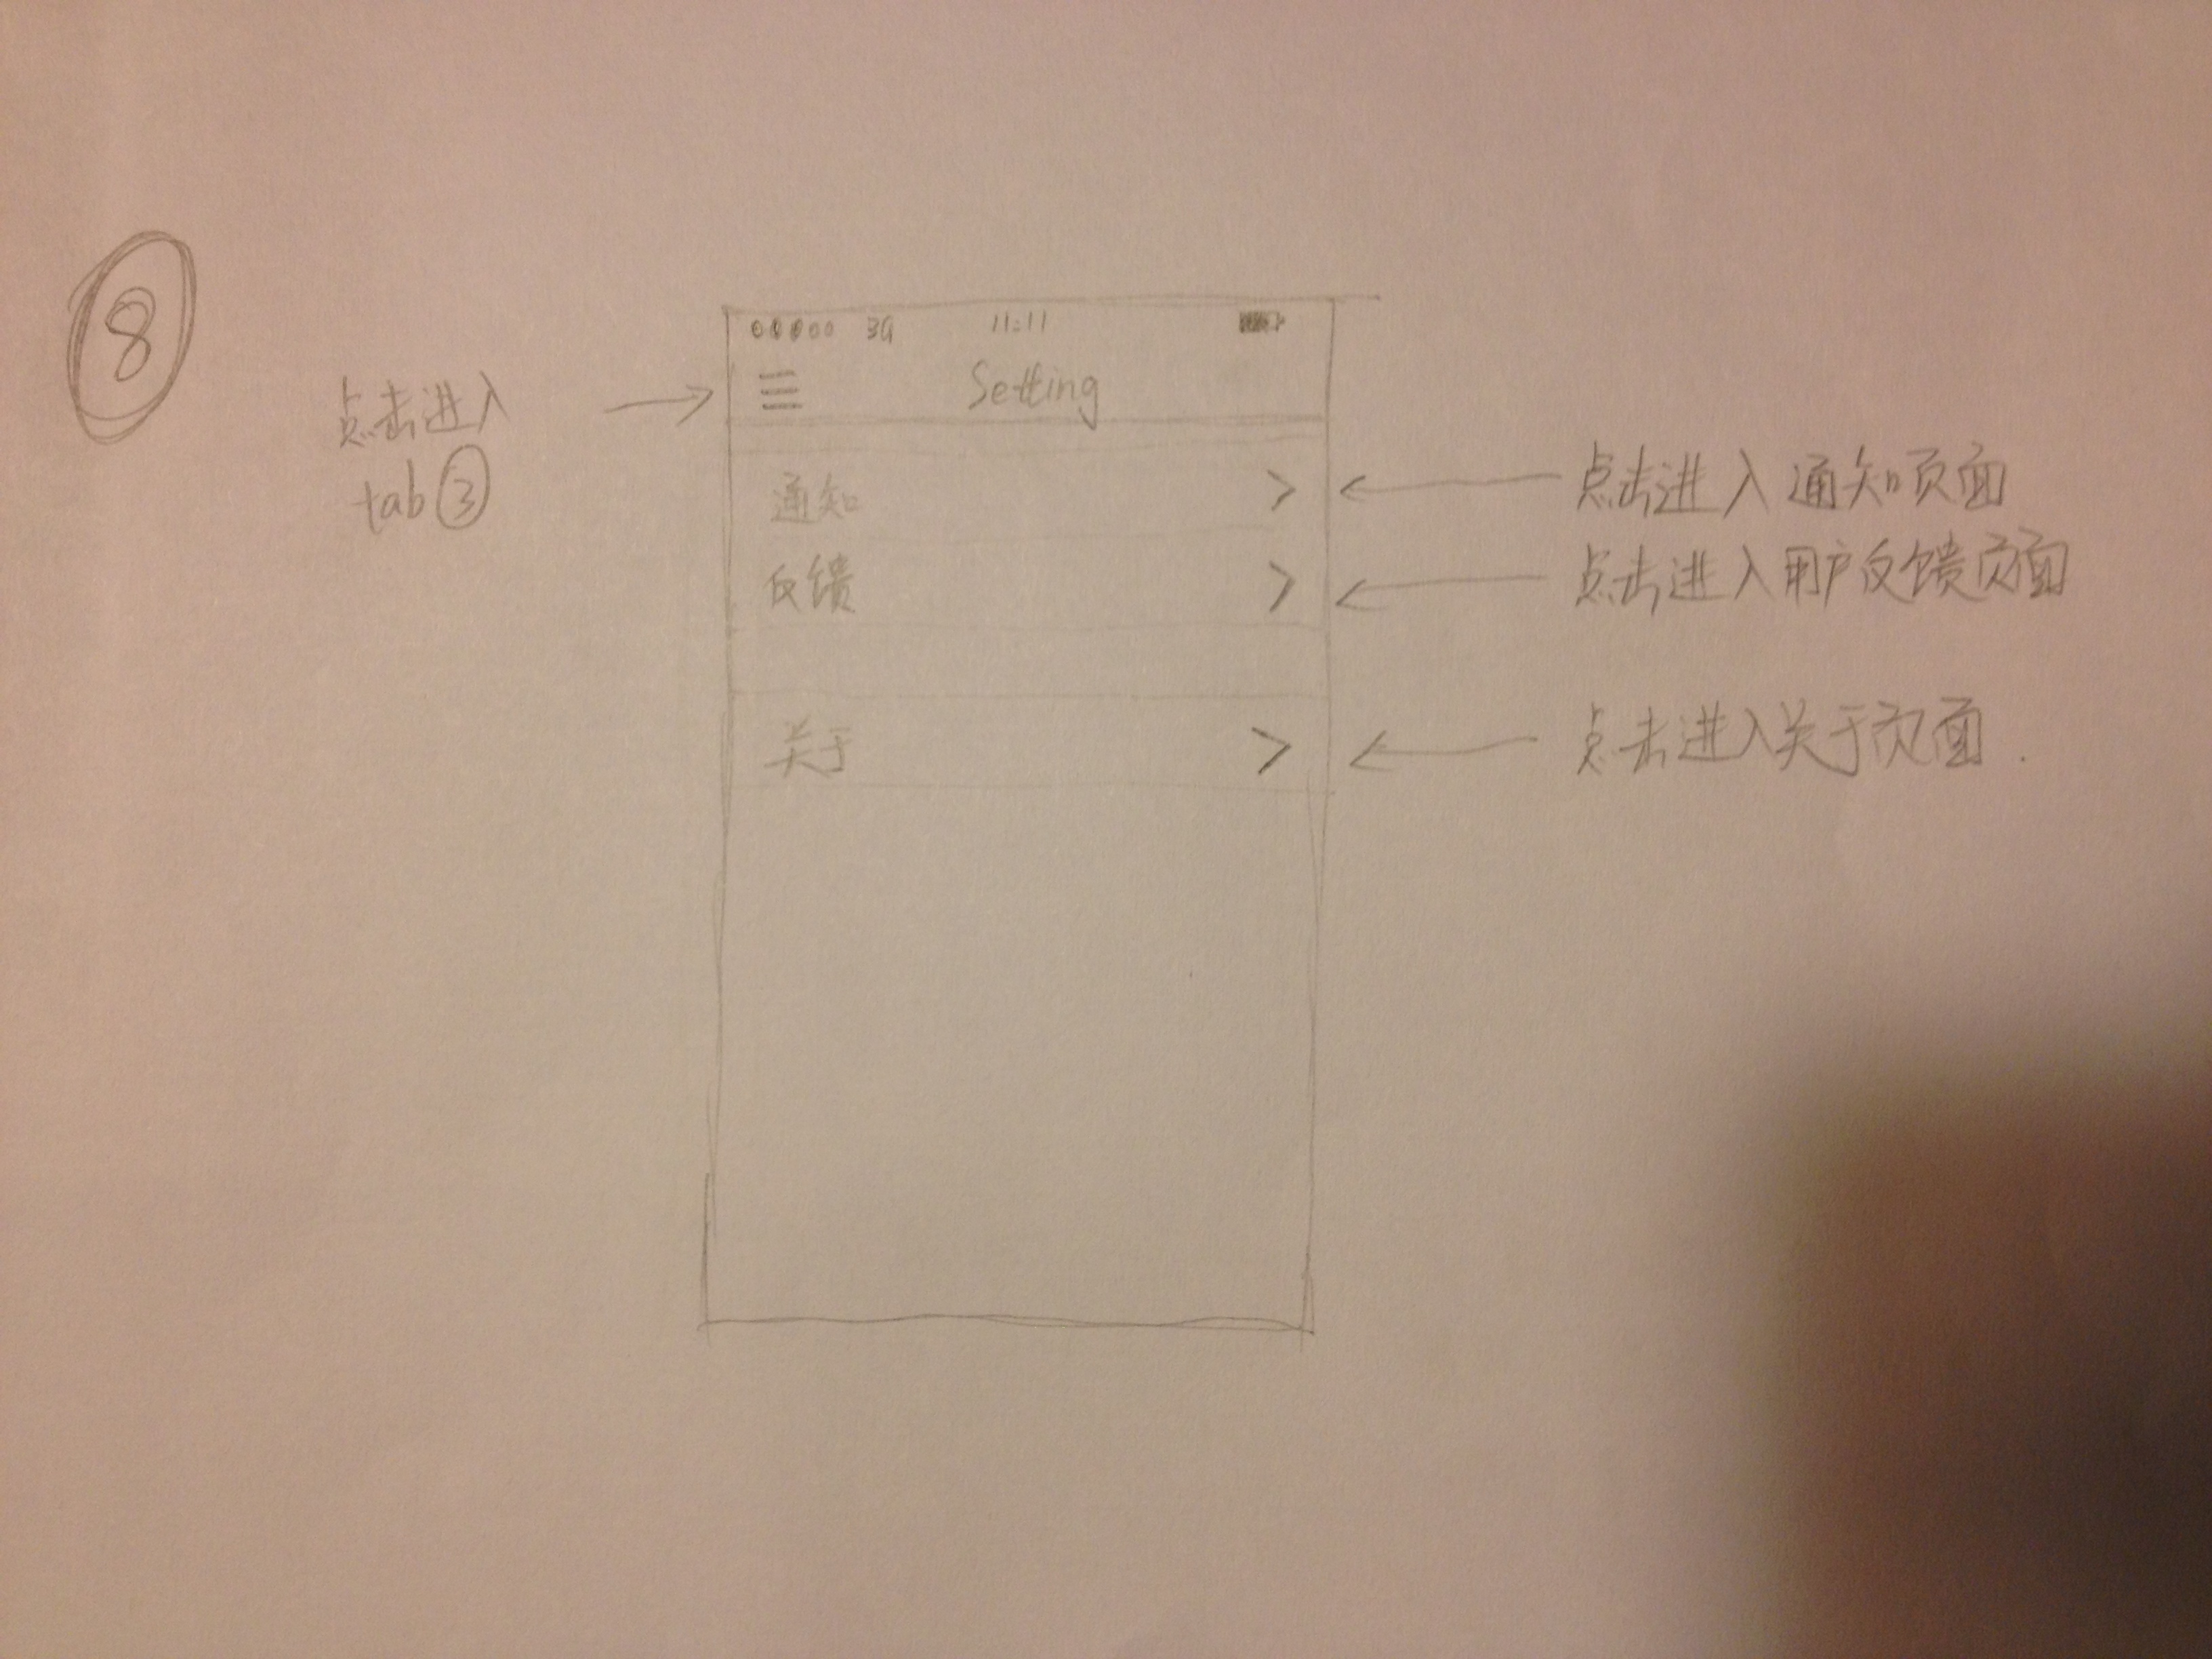 8
点击进入
tab③
3G 11:11
Setting
通知
反馈
关于
点击进入通知页面
点击进入用户反馈页面
点击进入关于页面.